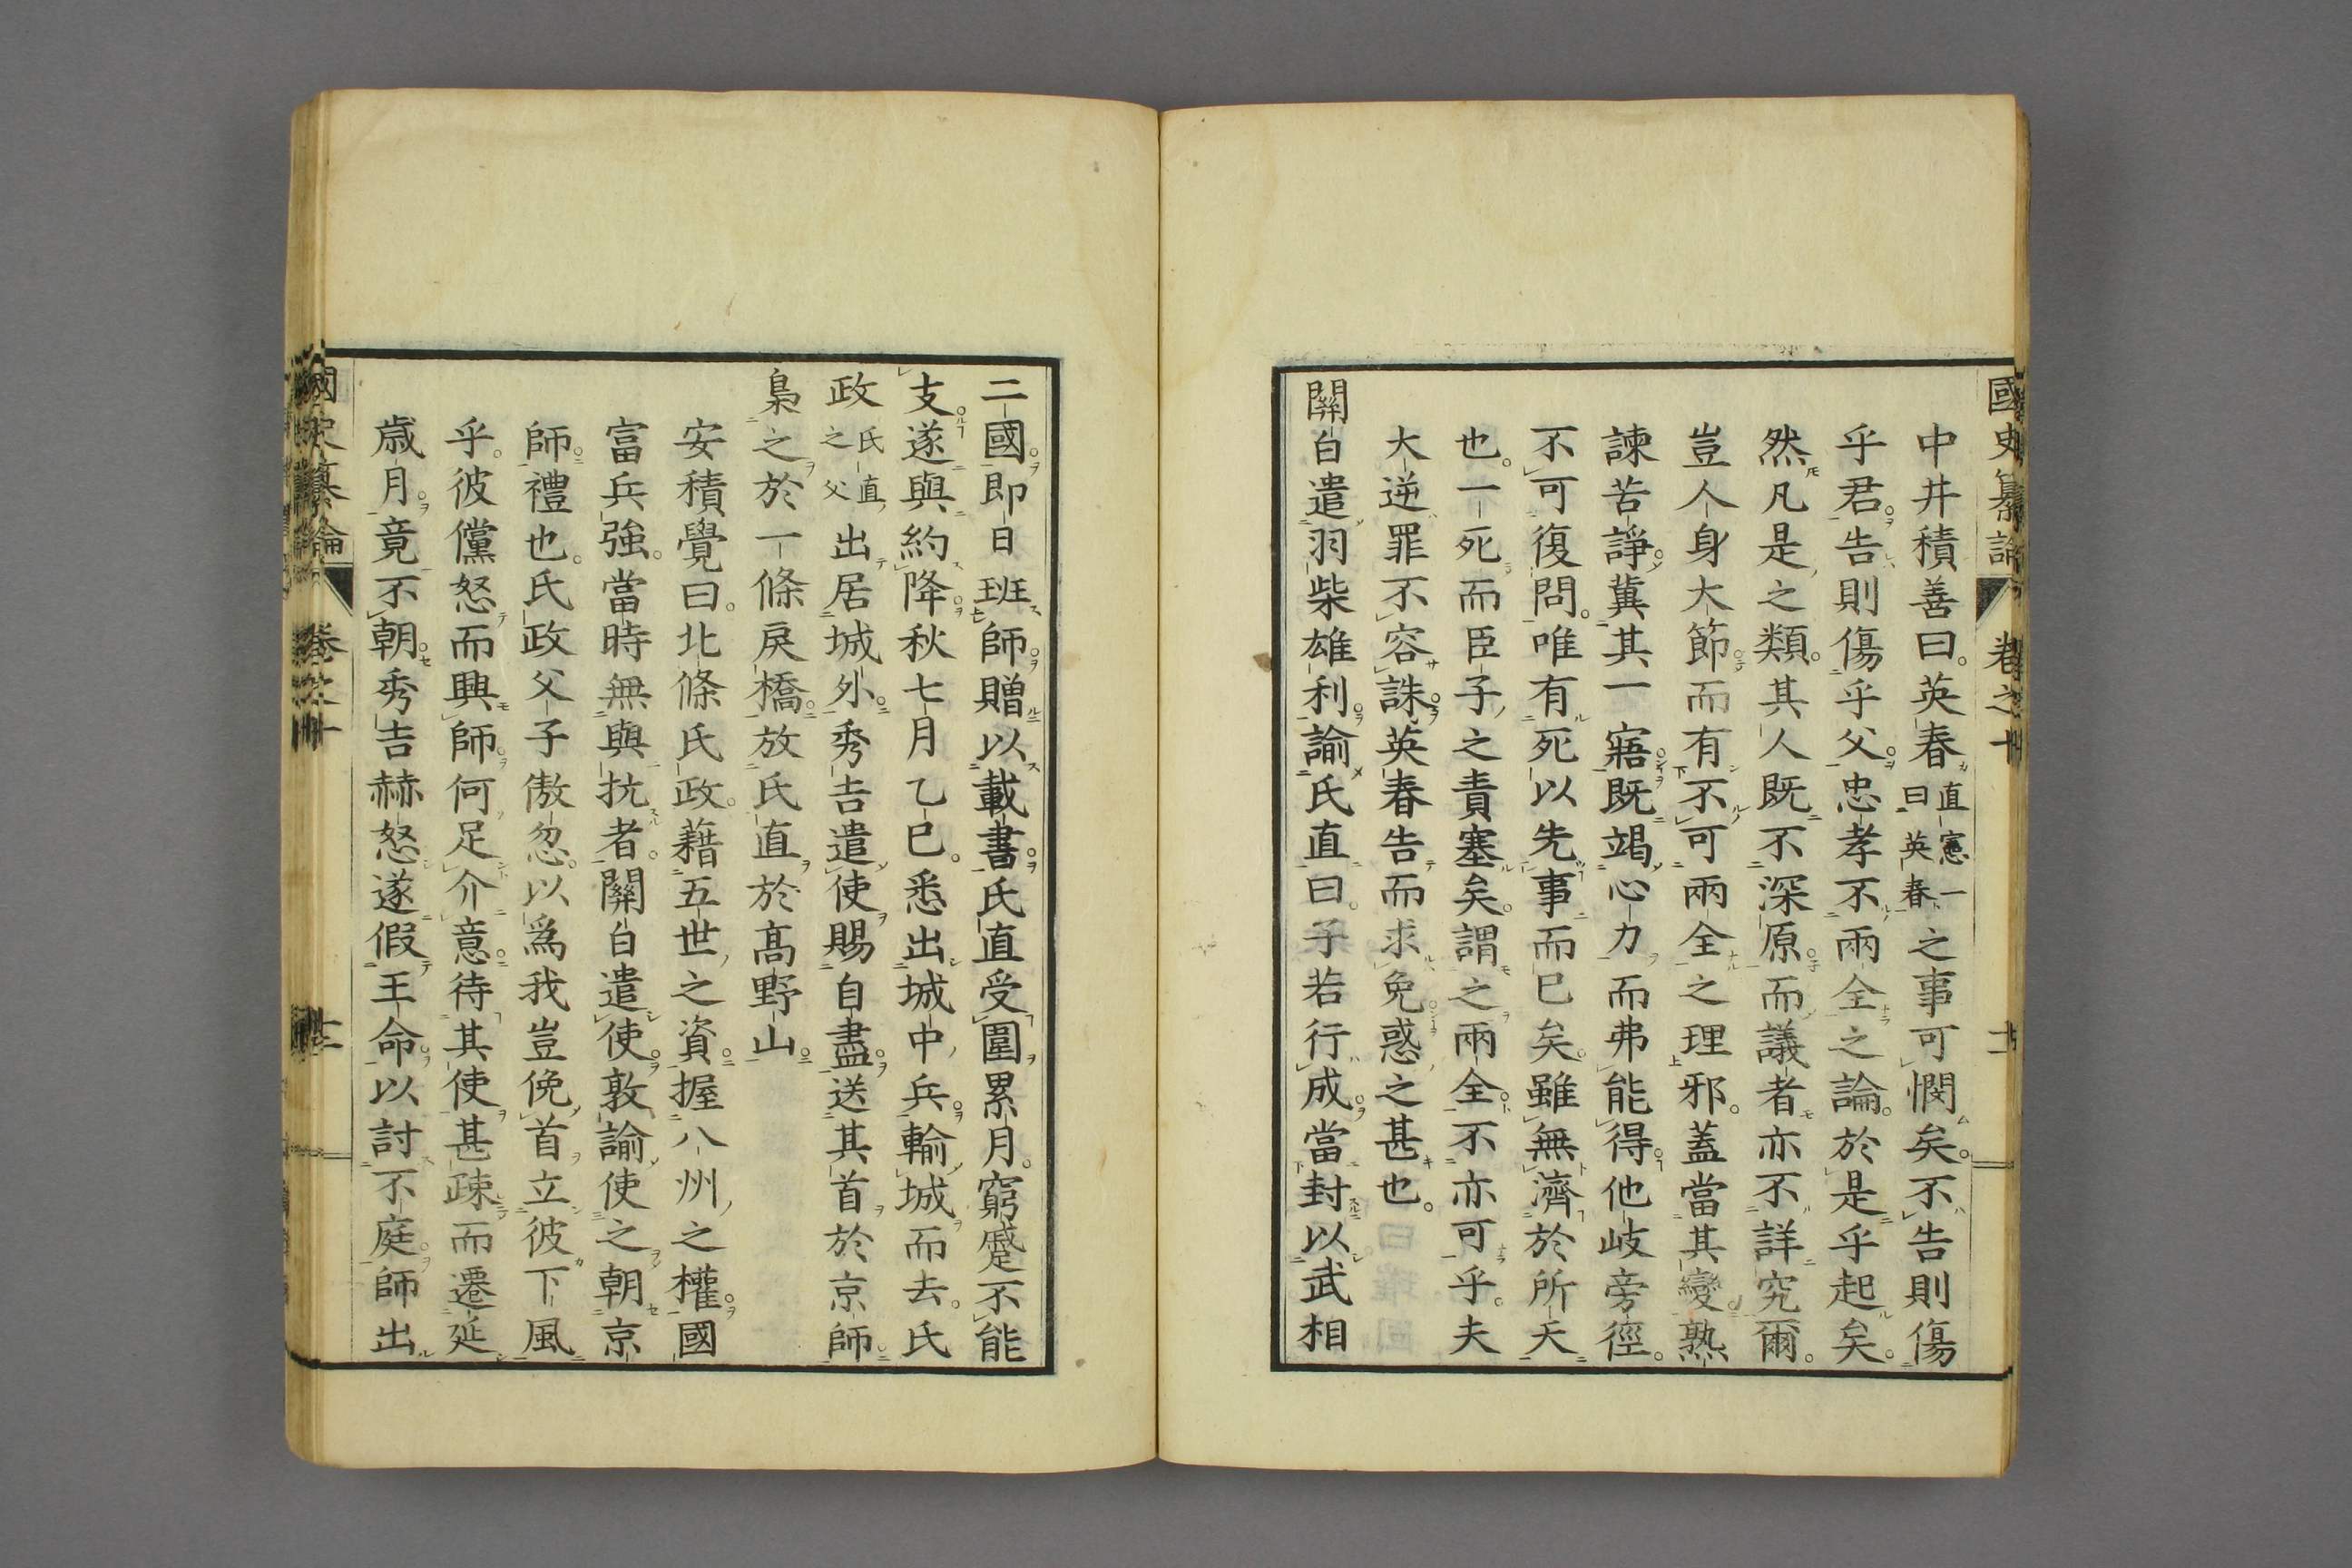 國史纂論 卷之十
中井積善曰。英春直憲曰英春一之事可憫矣。不告則傷
乎君。告則傷乎父。忠孝不兩全之論。於是乎起矣。
然凡是之類。其人既不深原而議者亦不詳究爾。
豈人身大節而有不可兩全之理邪。蓋當其變熟
諫苦諍。冀其一寤既竭心力而弗能得他岐旁徑。
不可復問。唯有死以先事而已矣。雖無濟於所天
也。一死而臣子之責塞矣。謂之兩全不亦可乎。夫
大逆罪不容誅英春告而求免惑之甚也。
關白遣羽柴雄利諭氏直曰。子若行成當封以武相
二國即日班師贈以載書氏直受圍累月。窮蹙不能
支遂與約降秋七月乙巳。悉出城中兵輸城而去。氏
政氏直之父出居城外秀吉遣使賜自盡送其首於京師
梟之於一條戻橋放氏直於髙野山
安積覺曰。北條氏政。藉五世之資握八州之權。國
富兵強。當時無與抗者。關白遣使敦諭使之朝京
師。禮也。氏政父子傲忽。以爲我豈俛首立彼下風
乎。彼儻怒而興師何足介意待其使甚疎而遷延
歳月竟不朝秀吉赫怒遂假王命以討不庭師出
國史纂論 卷之十